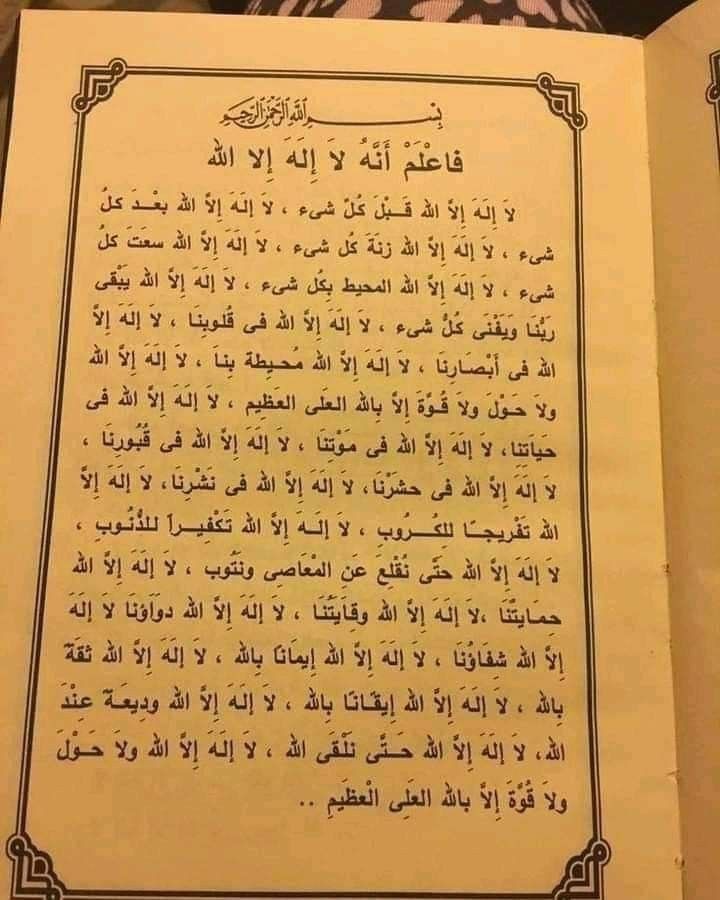 بِسْمِ اللَّهِ الرَّحْمَنِ الرَّحِيمِ
فاعْلَمْ أَنَّهُ لاَ إِلَهَ إلا الله
لاَ إِلَهَ إِلاَّ الله قَبْلَ كُلِّ شىء ، لاَ إِلَهَ إِلاَّ الله بعْدَ كلُ
شىء ، لاَ إِلَهَ إِلاَّ الله زنَةَ كُل شىء ، لاَ إِلَهَ إِلاَّ الله سعَتَ كلُ
شىء ، لاَ إِلَهَ إِلاَّ الله المحيط بِكُل شىء ، لاَ إِلَهَ إِلاَّ الله يَبْقى
رَبُّنَا وَيَفْنَى كُلُّ شىء ، لاَ إِلَهَ إِلاَّ الله فى قلُوبِنَا ، لاَ إِلَهَ إِلاَّ
الله فى أَبْصَارِنَا ، لاَ إِلَهَ إِلاَّ الله مُحيطة بنَا ، لاَ إِلَهَ إِلاَّ الله
ولاَ حَوْلَ ولاَ قُوَّةَ إِلاَّ بِالله العَلَى العَظِيم ، لاَ إِلَهَ إِلاَّ الله فى
حيَاتِنِا، لاَ إِلَهَ إِلاَّ الله فى مَوْتِنَا ، لاَ إِلَهَ إِلاَّ الله فى قُبُورِنَا ،
لاَ إِلَهَ إِلاَّ الله فى حشَرْنَا، لاَ إِلَهَ إِلاَّ الله فى نَشْرِنَا، لاَ إِلَهَ إِلاَّ
الله تَفْرِيجًا للكُرُوبِ ، لاَ إِلَهَ إِلاَّ الله تَكْفِيراً للذُنُوبِ ،
لاَ إِلَهَ إِلاَّ الله حَتَى نُقْلِعَ عَنِ المْعَاصِى ونَتُوب ، لاَ إِلَهَ إِلاَّ الله
حِمَايتُنَا ،لاَ إِلَهَ إِلاَّ الله وقِايَتُنَا ، لاَ إِلَهَ إِلاَّ الله دوَاؤنَا لاَ إِلَهَ
إِلاَّ الله شِفَاؤُنَا ، لاَ إِلَهَ إِلاَّ الله إِيمَانًا بِالله ، لاَ إِلَهَ إِلاَّ الله ثقَةً
بِالله ، لاَ إِلَهَ إِلاَّ الله إِيقَانًا بِالله ، لاَ إِلَهَ إِلاَّ الله ودِيعَةً عِنْدَ
الله، لاَ إِلَهَ إِلاَّ الله حَتَّى نَلْقَى الله ، لاَ إِلَهَ إِلاَّ الله ولاَ حَوْلَ
ولاَ قُوَّةَ إِلاَّ بالله العَلِى الْعظَيمِ ..